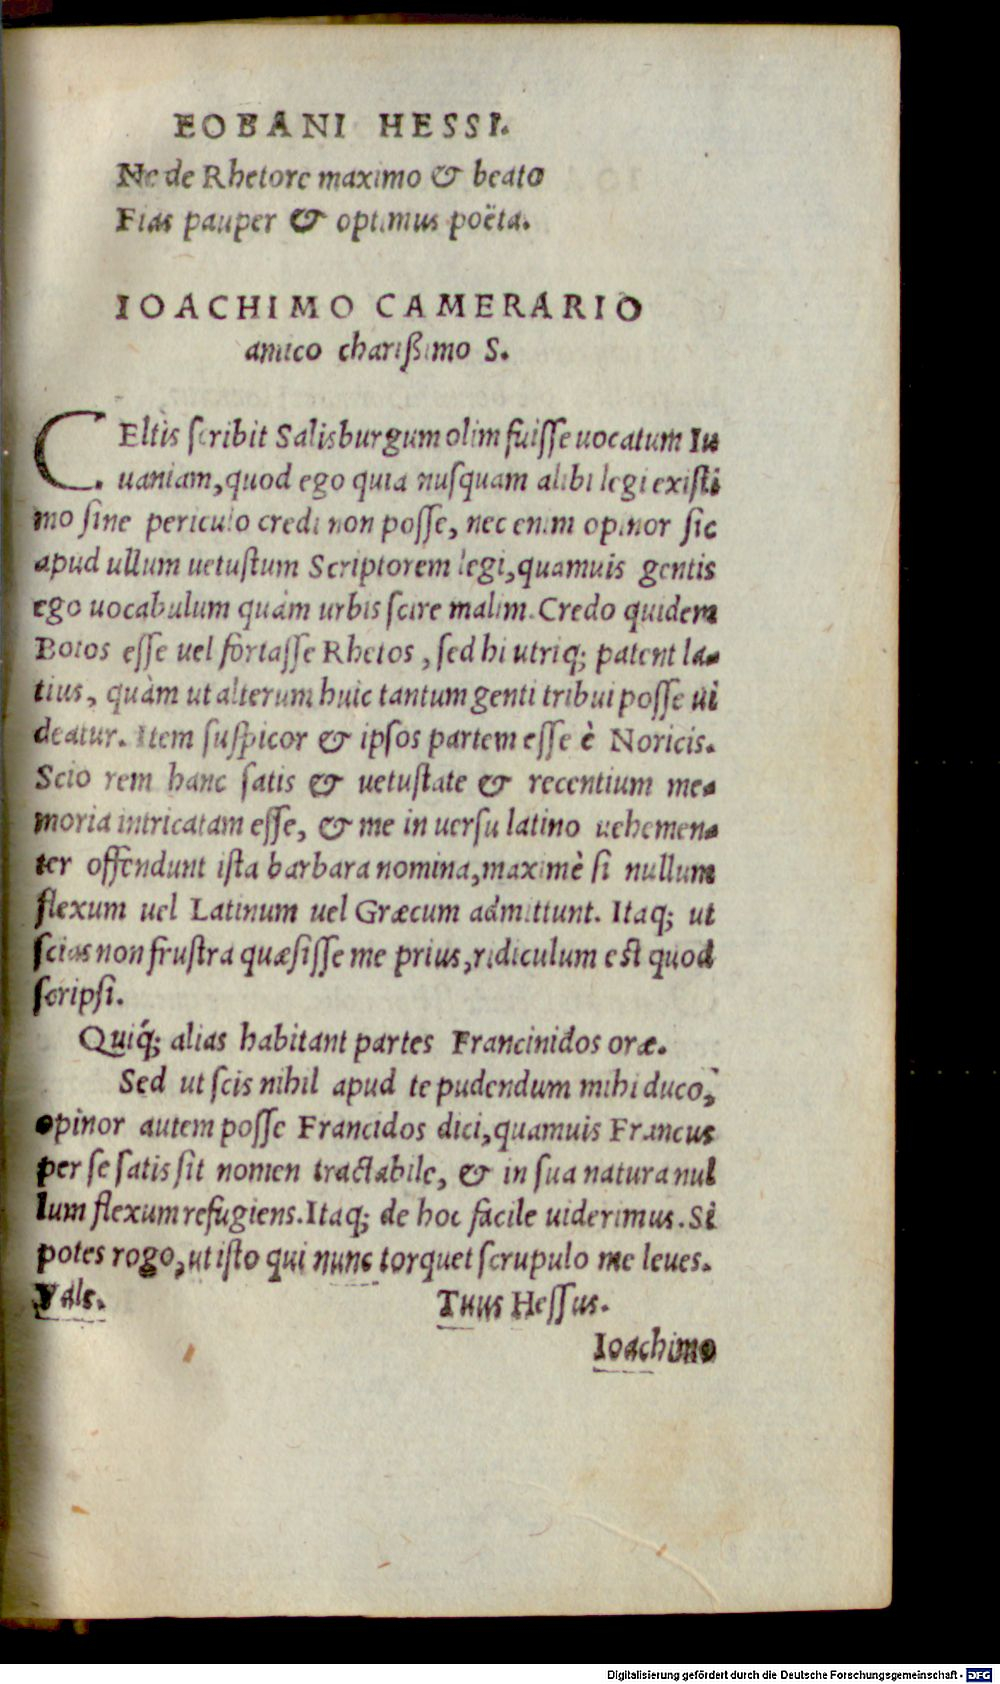 EOBANI HESSI.
Ne de Rhetore maximo & beato
Fias pauper & optimus poëta.
IOACHIMO CAMERARIO
amico charißimo S.
CEltis scribit Salisburgum olim fuisse uocatum Iu
uaniam, quod ego quia nusquam alibi legi existi
mo sine periculo credi non posse, nec enim opinor sic
apud ullum uetustum Scriptorem legi, quamuis gentis
ego uocabulum quàm urbis scire malim. Credo quidem
Boios esse uel fortasse Rhetos, sed hi utriq; patent la-
tius, quàm ut alterum huic tantum genti tribui posse ui
deatur. Item suspicor & ipsos partem esse è Noricis.
Scio rem hanc satis & uetustate & recentium me-
moria intricatam esse, & me in uersu latino uehemen-
ter offendunt ista barbara nomina, maximè si nullum
flexum uel Latinum uel Græcum admittunt. Itaq; ut
scias non frustra quæsisse me prius, ridiculum est quod
scripsi.
Quiq́; alias habitant partes Francinidos oræ.
Sed ut scis nihil apud te pudendum mihi duco,
opinor autem posse Francidos dici, quamuis Francus
per se satis sit nomen tractabile, & in sua natura nul
lum flexum refugiens. Itaq; de hoc facile uiderimus. Si
potes rogo, ut isto qui nunc torquet scrupulo me leues.
Vale. Tuus Hessus.
Ioachimo
Digitalisierung gefördert durch die Deutsche Forschungsgemeinschaft - DFG